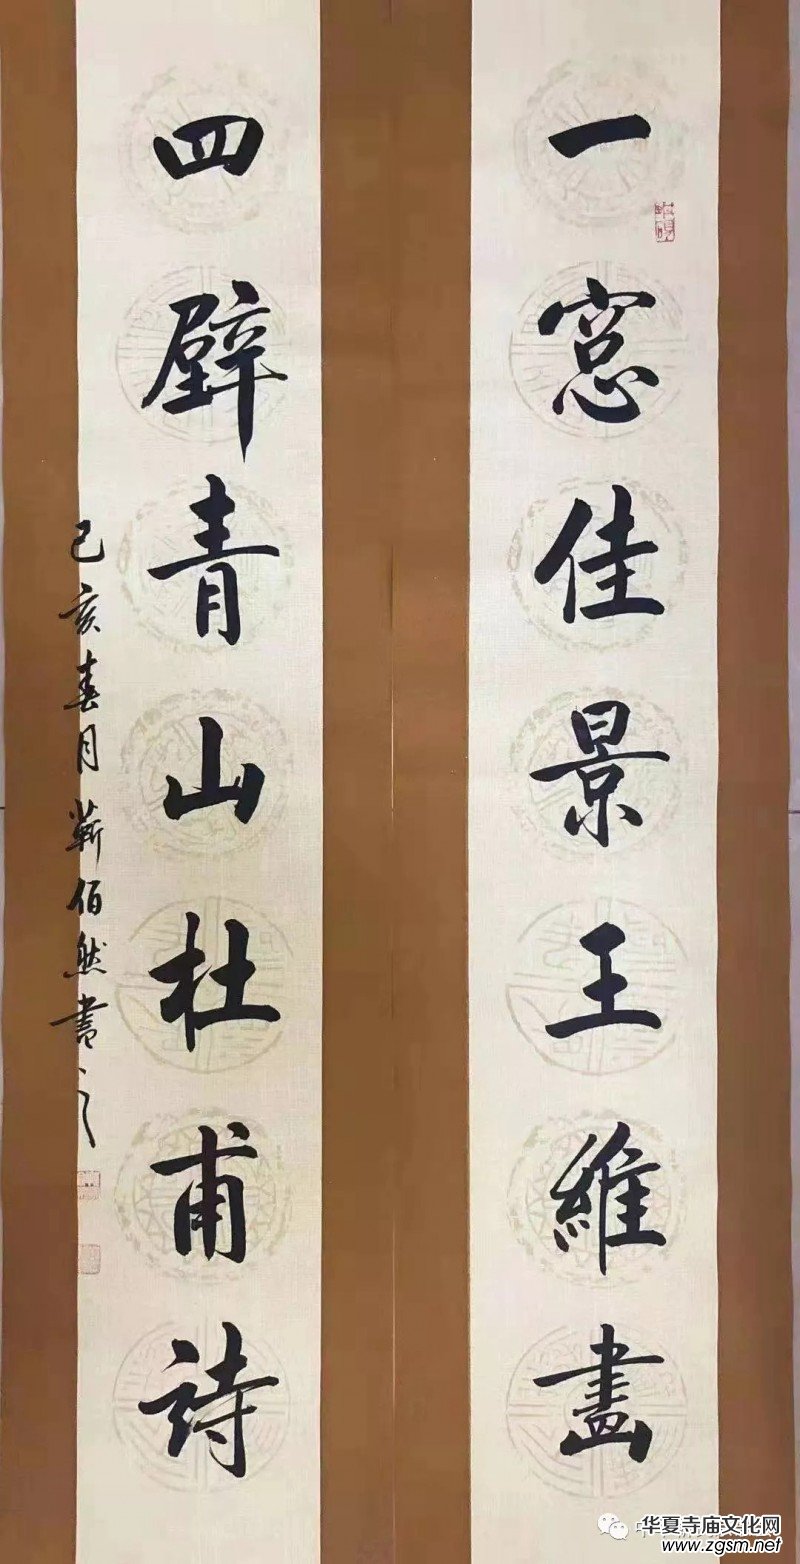 一窓佳景王維畫
四壁青山杜甫詩
己亥春月蕲佰然書
华夏寺庙文化网
www.zgsm.net